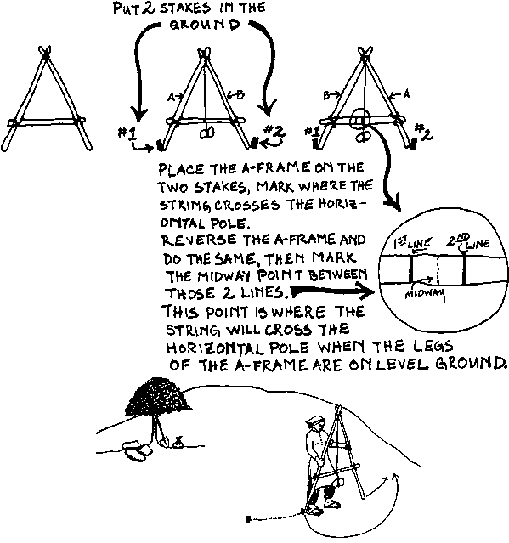 PUT 2 STAKES IN THE
GROUND
A
B
#1
#2
B
A
#1
#2
PLACE THE A-FRAME ON THE
TWO STAKES, MARK WHERE THE
STRING CROSSES THE HORIZ-
ONTAL POLE.
REVERSE THE A-FRAME AND
DO THE SAME, THEN MARK
THE MIDWAY POINT BETWEEN
THOSE 2 LINES.
THIS POINT IS WHERE THE
STRING WILL CROSS THE
HORIZONTAL POLE WHEN THE LEGS
OF THE A-FRAME ARE ON LEVEL GROUND.
1ST LINE
2ND LINE
MIDWAY